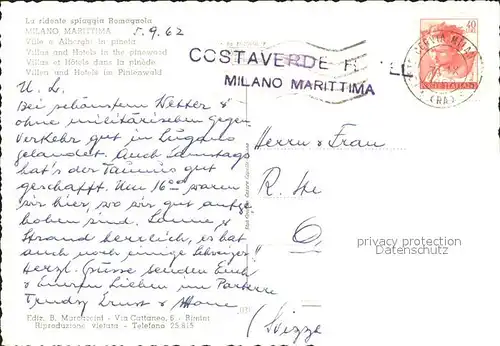 La ridente spiaggia Romagnola
MILANO MARITTIMA
5.9.62
Ville e Alberghi in pineta
Villas and Hotels in the pinewood
Villas et Hôtels dans la pinède
Villen und Hotels im Pinienwald
COSTAVERDE H EL
MILANO MARITTIMA
40
POSTE ITALIANE
(RA)
U. L.
Bei schönstem Wetter &
ohne militärischen Gegen-
verkehr gut in Lugano
gelandet. Auch Samstags
hat's der Taunus gut
geschafft. Um 16 waren
wir hier, wo wir gut aufge-
hoben sind. Sonne &
Strand herrlich, es hat
auch noch einige Schweizer.
Herzl. Grüsse senden Euch
& Euren Lieben im Parterre
Trudy Ernst &
Herrn & Frau
R.
privacy protection
Datenschutz
(Svizze
Ediz. B. Marconcini - Via Cattaneo, 5 - Rimini
Riproduzione vietata - Telefono 25.815